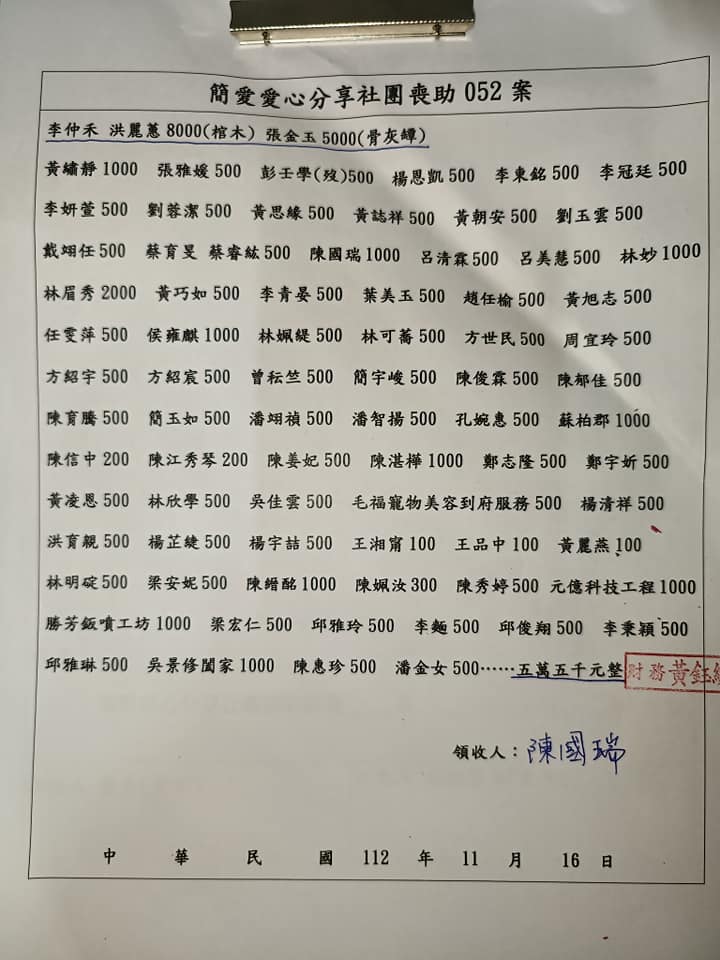 簡愛愛心分享社團喪助 052 案
李仲禾 洪麗蕙 8000(棺木) 張金玉 5000(骨灰罈)
黃繡靜 1000 張雅媛 500 彭壬學(歿)500 楊恩凱 500 李東銘 500 李冠廷 500
李妍萱 500 劉蓉潔 500 黃思緣 500 黃誌祥 500 黃朝安 500 劉玉雲 500
戴翊任 500 蔡育旻 蔡睿紘 500 陳國瑞 1000 呂清霖 500 呂美慧 500 林妙 1000
林眉秀 2000 黃巧如 500 李青晏 500 葉美玉 500 趙任榆 500 黃旭志 500
任雯萍 500 侯雍麒 1000 林姵緹 500 林可蕎 500 方世民 500 周宜玲 500
方紹宇 500 方紹宸 500 曾耘竺 500 簡宇峻 500 陳俊霖 500 陳郁佳 500
陳育騰 500 簡玉如 500 潘翊禎 500 潘智揚 500 孔婉惠 500 蘇柏郡 1000
陳信中 200 陳江秀琴 200 陳姜妃 500 陳湛樺 1000 鄭志隆 500 鄭宇妡 500
黃凌恩 500 林欣學 500 吳佳雲 500 毛福寵物美容到府服務 500 楊清祥 500
洪育親 500 楊芷緁 500 楊宇喆 500 王湘甯 100 王品中 100 黃麗燕 100
林明碇 500 梁安妮 500 陳縉酩 1000 陳姵汝 300 陳秀婷 500 元億科技工程 1000
勝芳鈑噴工坊 1000 梁宏仁 500 邱雅玲 500 李麵 500 邱俊翔 500 李秉穎 500
邱雅琳 500 吳景修闔家 1000 陳惠珍 500 潘金女 500……五萬五千元整 財務黃鈺
領收人：陳國瑞
中 華 民 國 112 年 11 月 16 日